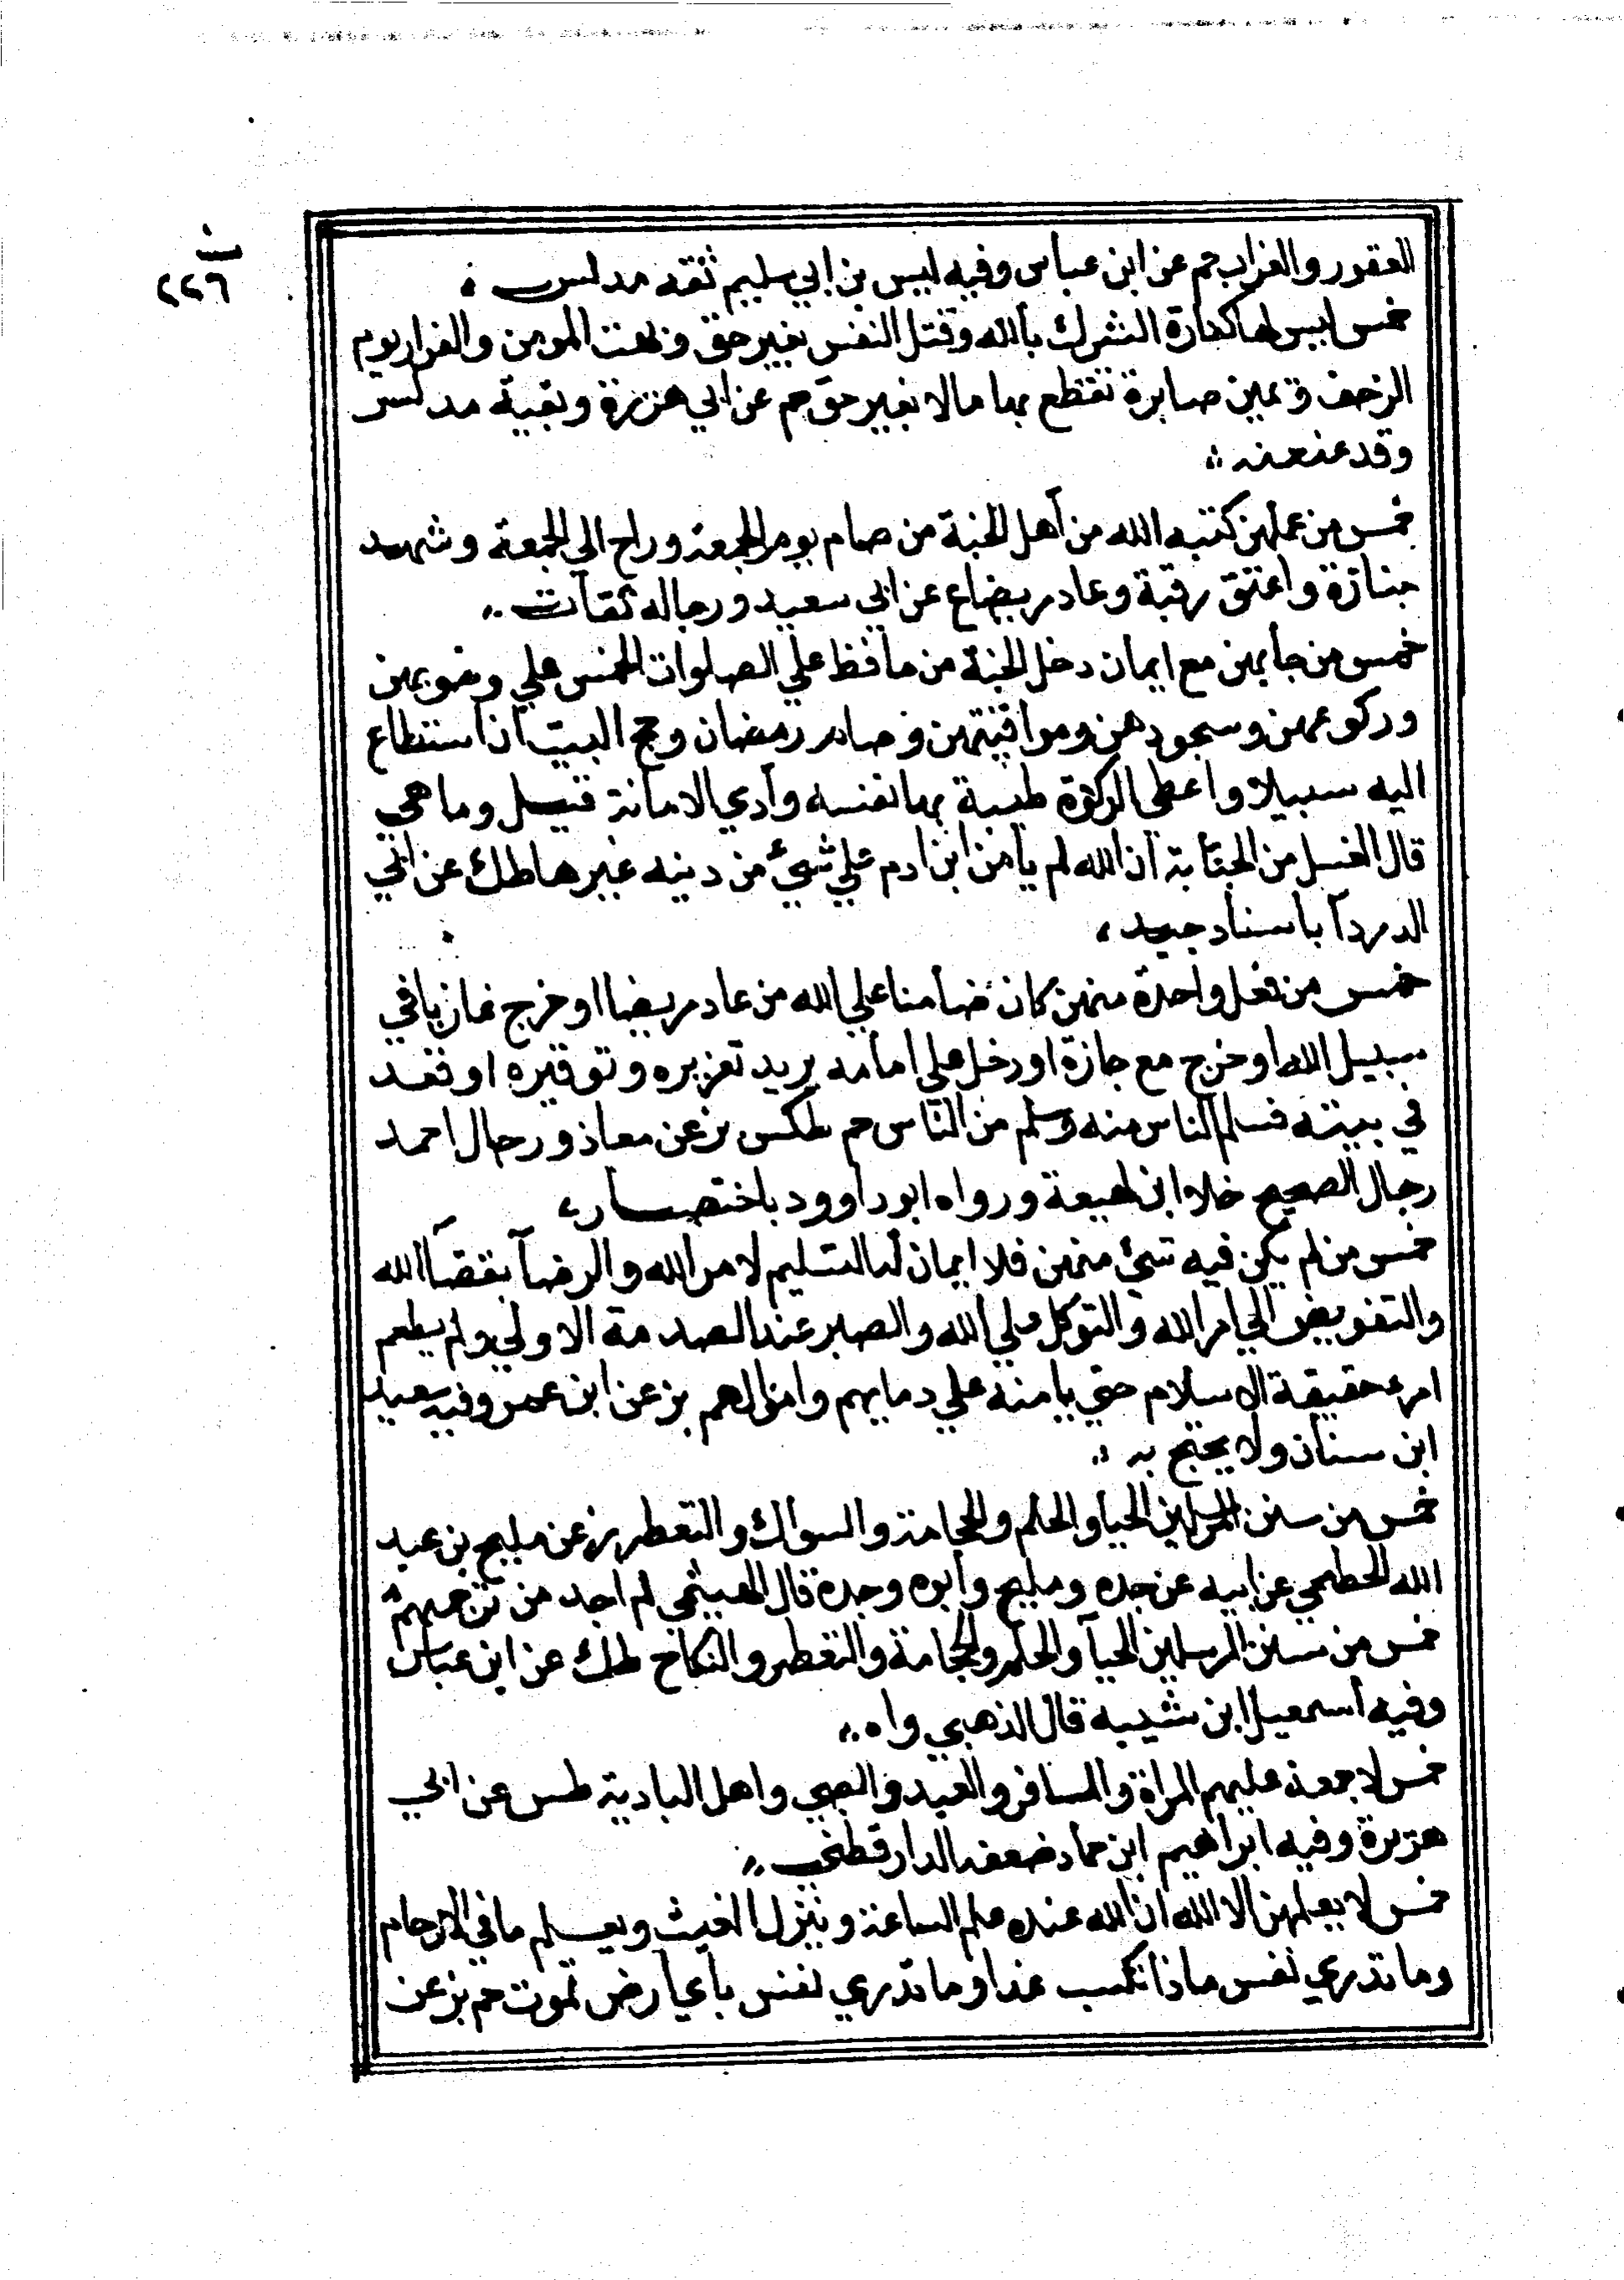 ٢٢٦
العقور والغراب حم عن ابن عباس وفيه ليس بن ابي سليم ثقه مدلس
خمس ليس لها كفارة الشرك بالله وقتل النفس بغير حق وبهت المومن والفرار يوم
الزحف ويمين صابرة تقتطع بها مالا بغير حق حم عن ابي هريرة وبقية مدلس
وقد عنعنه
خمس من عملهن كتبه الله من أهل الجنة من صام يوم الجمعة وراح الي الجمعة وشهد
جنازة واعتق رقبة وعاد مريضا ع عن ابي سعيد ورجاله ثقات
خمس من جا بهن مع ايمان دخل الجنة من حافظ علي الصلوات الخمس علي وضويهن
وركوعهن وسجودهن ومواقيتهن وصام رمضان وحج البيت ان استطاع
اليه سبيلا واعطي الزكوة طيبة بها نفسه وأدي الامانة قيل وما هي
قال الغسل من الجنابة ان الله لم يأمن ابن ادم علي شيء من دينه غيرها طك عن ابي
الدردآ بأسناد جيد
خمس من فعل واحدة منهن كان ضامنا علي الله من عاد مريضا او خرج غازيا في
سبيل الله او خرج مع جازة او دخل علي امامه يريد تعزيره وتوقيره او قعد
في بيته فسلم الناس منه وسلم من الناس حم طكس بز عن معاذ ورجال احمد
رجال الصحيح خلا ابن لهيعة ورواه ابو داوود باختصار
خمس من لم يكن فيه شيء منهن فلا ايمان له التسليم لامر الله والرضآ بقضآ الله
والتفويض الي امر الله والتوكل علي الله والصبر عند الصدمة الاولي ولم يطعم
امرء حقيقة الاسلام حتي يامنه علي دمايهم واموالهم بز عن ابن عمر وفيه سعيد
ابن سنان ولا يحتج به
خمس من سنن المرسلين الحيا والحلم والحجامة والسواك والتعطر بز عن مليح بن عبد
الله الخطمي عن ابيه عن جده ومليح وأبوه وجده قال الهيثمي لم اجد من ترجمهم
خمس من سنن المرسلين الحيآ والحلم والحجامة والتعطر والنكاح طك عن ابن عباس
وفيه أسمعيل ابن شيبه قال الذهبي واه
خمس لا جمعة عليهم المرأة والمسافر والعبد والصبي واهل البادية طس عن ابي
هريرة وفيه ابراهيم ابن حماد ضعفه الدارقطني
خمس لا يعلمهن الا الله ان الله عنده علم الساعة وينزل الغيث ويعلم ما في الارحام
وما تدري نفس ماذا تكسب غدا وما تدري نفس بأي أرض تموت حم بز عن